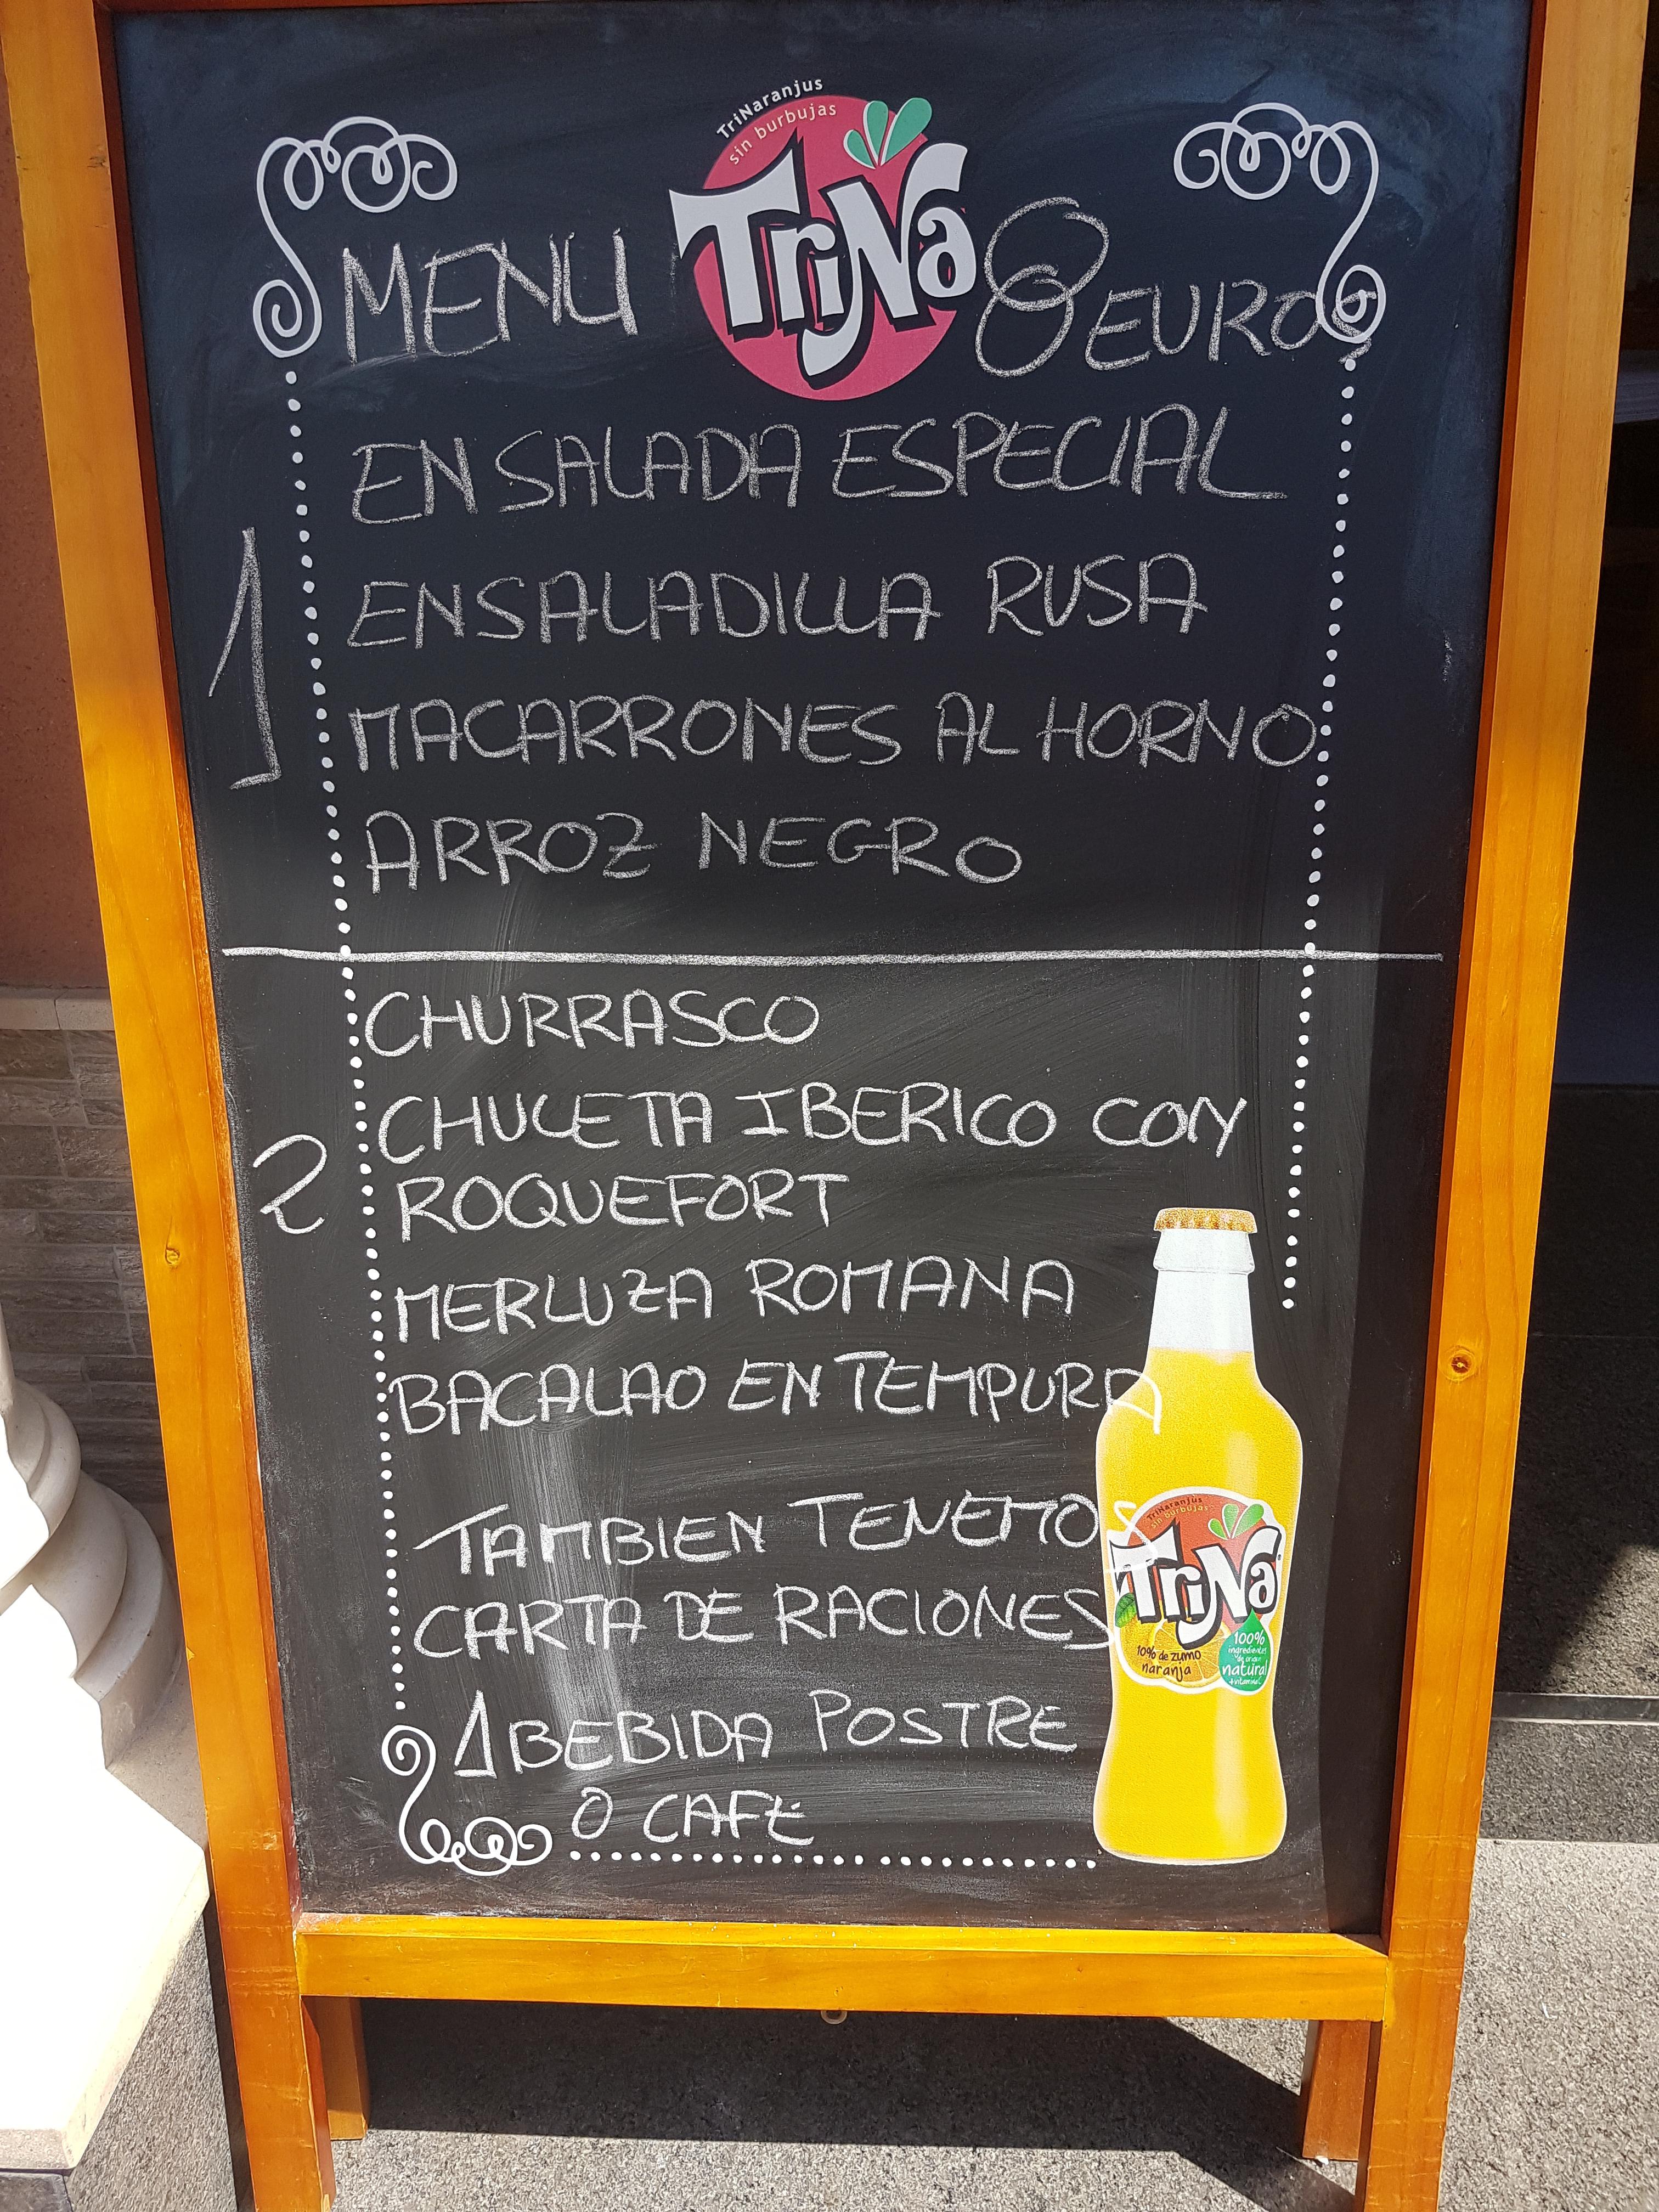 TriNaranjus
sin burbujas
TriNa
MENU 8 EUROS
ENSALADA ESPECIAL
1
ENSALADILLA RUSA
MACARRONES AL HORNO
ARROZ NEGRO
CHURRASCO
CHULETA IBERICO CON
2
ROQUEFORT
MERLUZA ROMANA
BACALAO EN TEMPURA
TAMBIEN TENEMOS
CARTA DE RACIONES
1 BEBIDA POSTRE
O CAFE
TriNaranjus
sin burbujas
TriNa
10% de zumo
naranja
100%
ingredientes
de origen
natural
+vitaminas